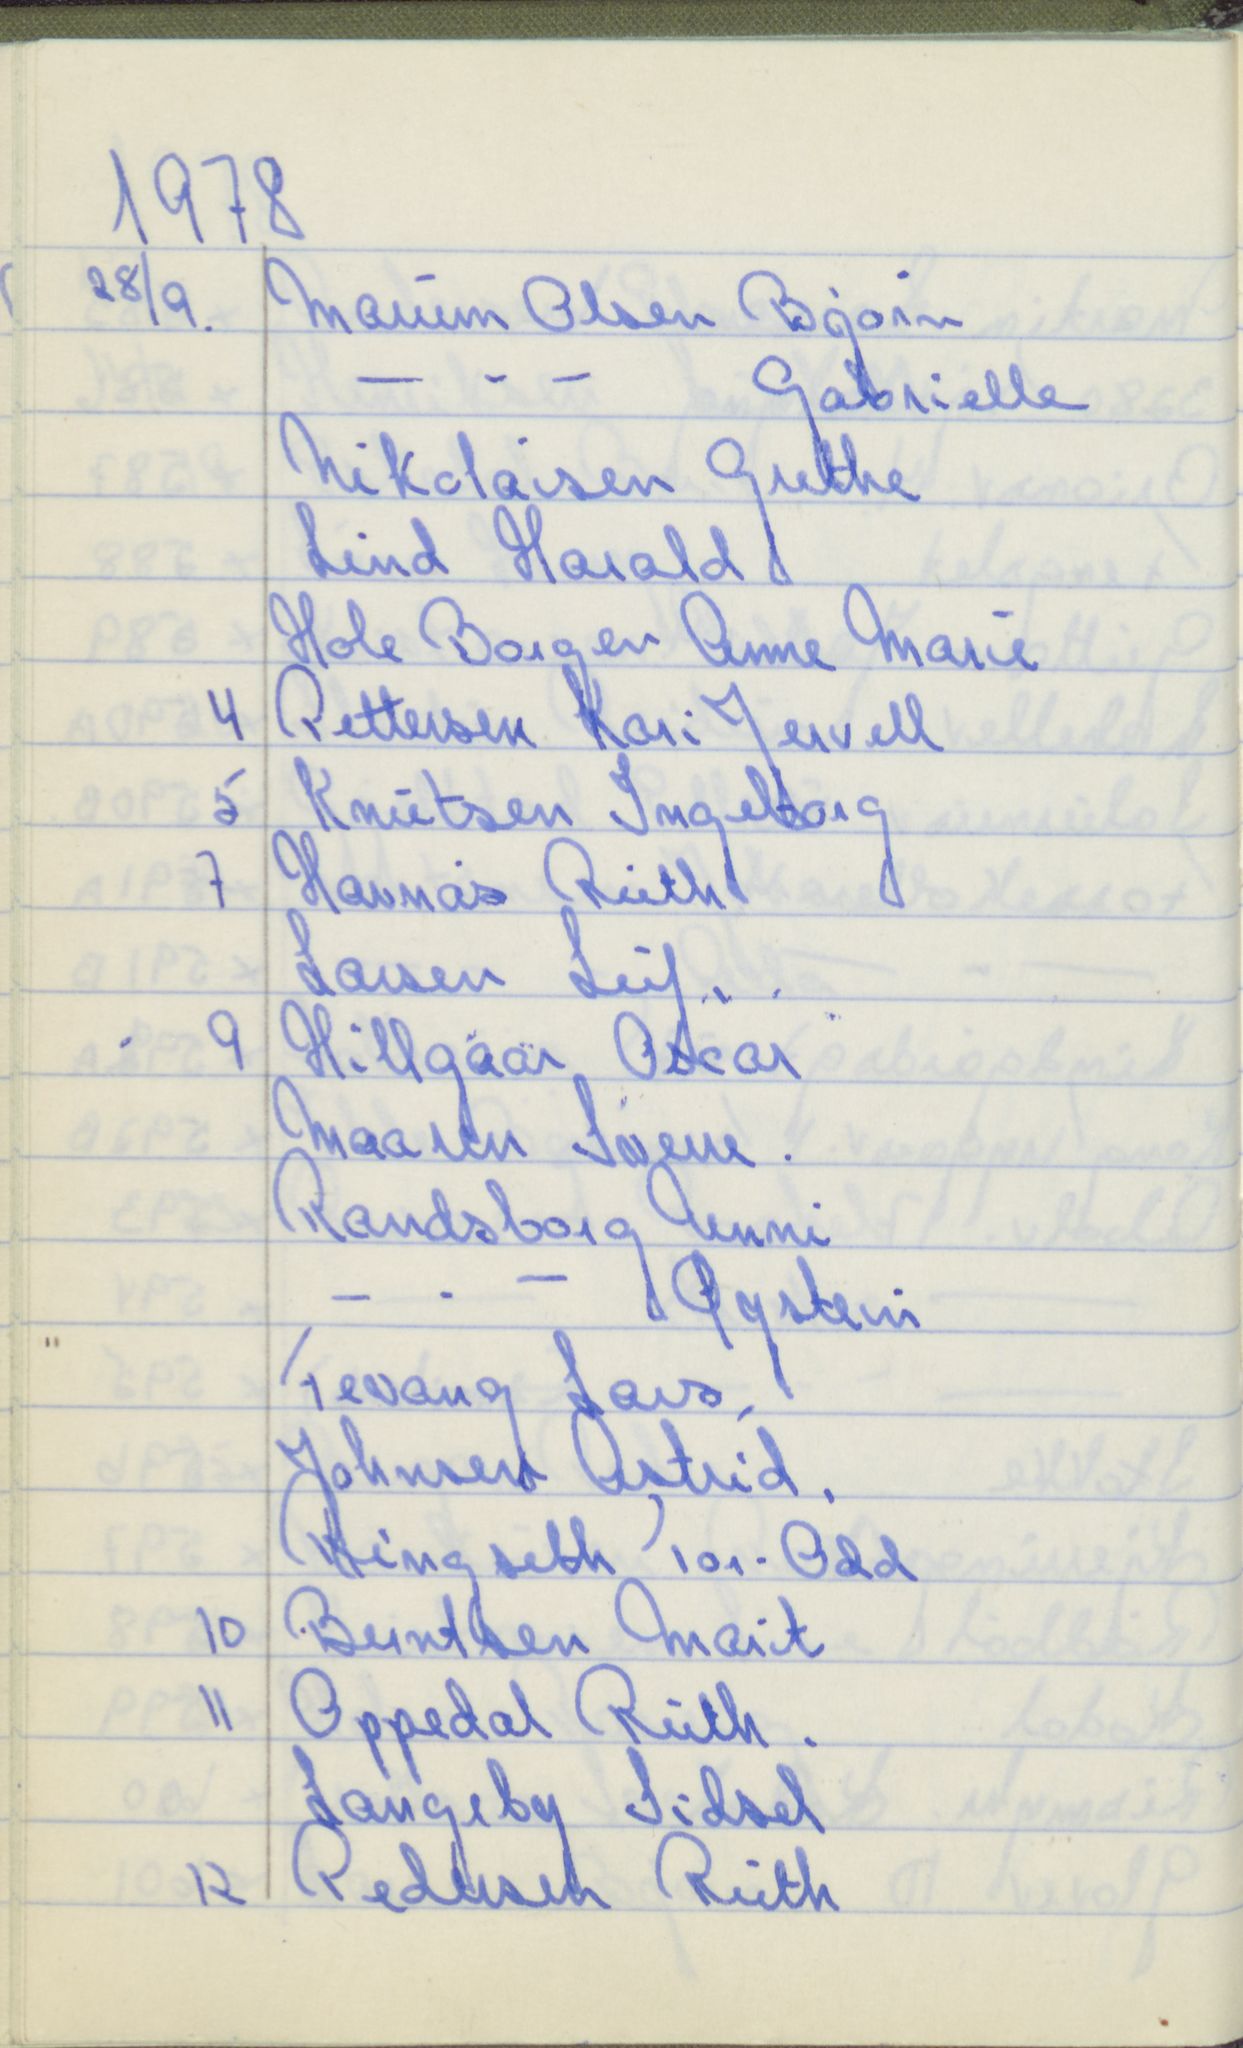 1978
28/9. Marium Olsen Bjørn
— - — Gabrielle
Nikolaisen Grethe
Lind Harald
Hole Borgen Anne Marie
4 Pettersen Kari Jervell
5 Knutsen Ingeborg
7 Havnås Ruth
Larsen Leif.
9 Hillgaar Oscar
Maaren Sverre.
Randsborg Unni
— . — Øystein
Tevang Lars.
Johnsen Astrid.
Ringseth Tor-Odd
10 Berntsen Marit
11 Oppedal Ruth.
Langeby Sidsel
12 Pedersen Ruth